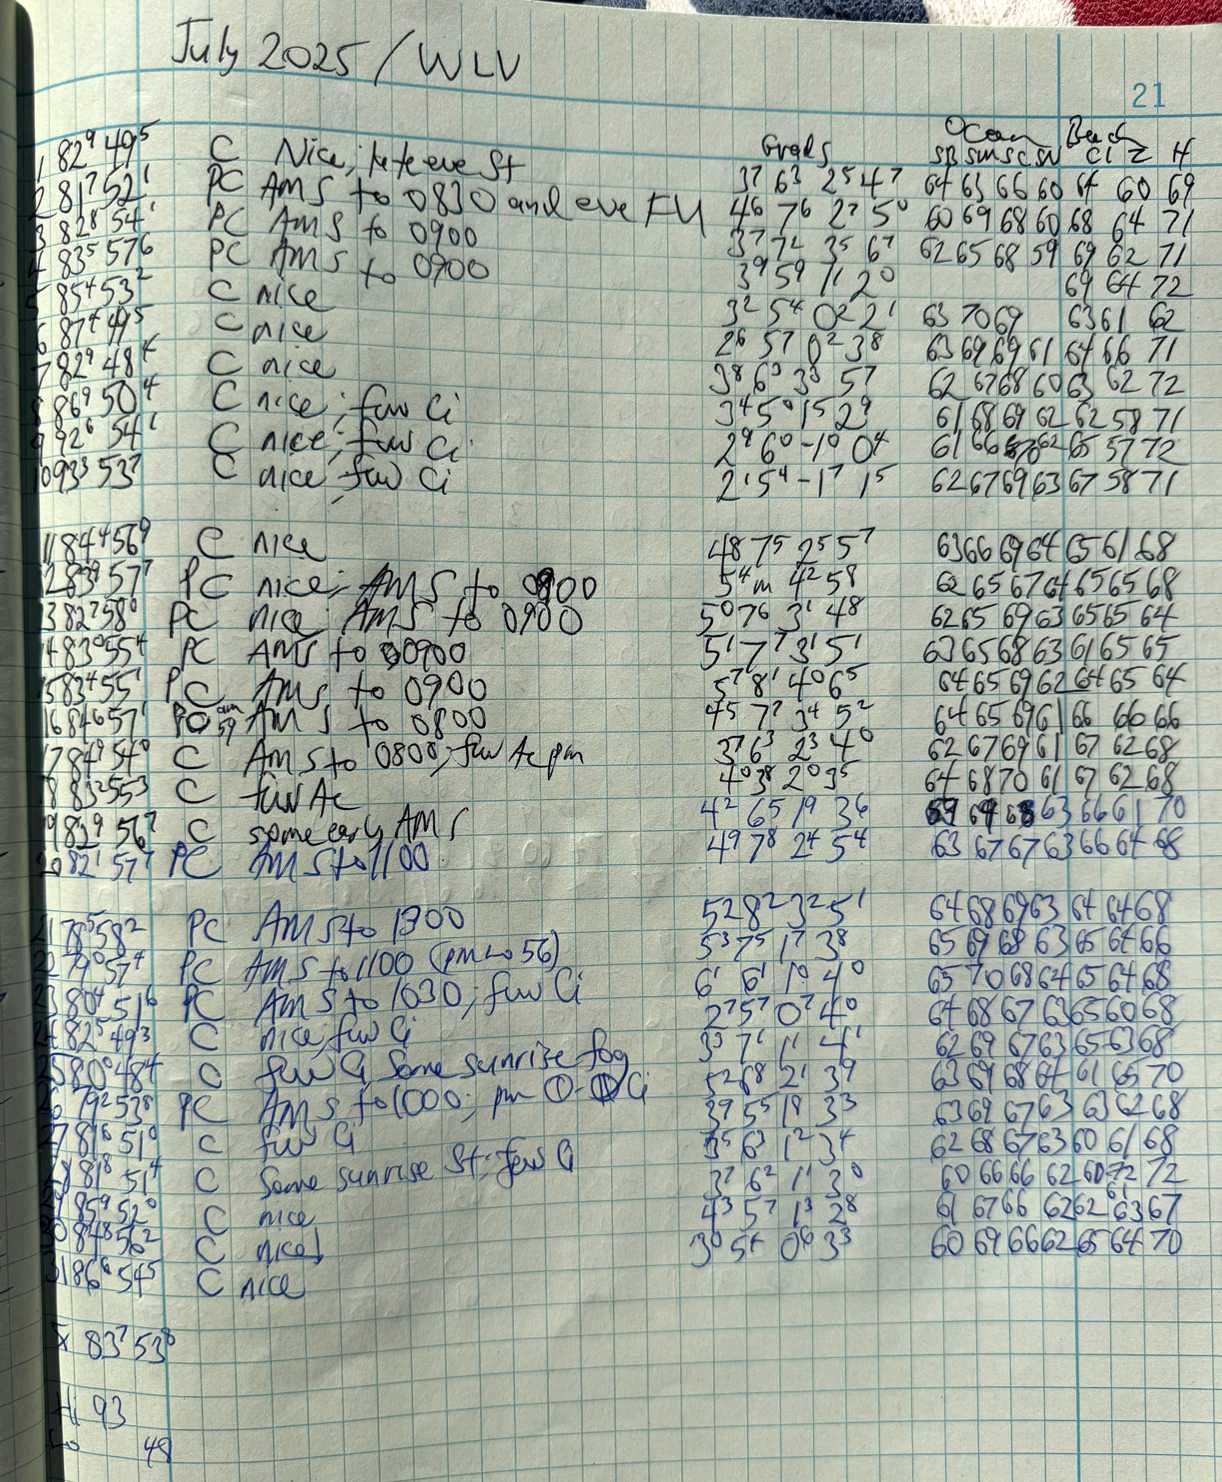 July 2025 / WLV
21
Grads Ocean Beach
SB SM SC SN CI Z H
1 82⁹ 49⁵ C Nice; late eve St 3⁷ 6³ 2⁵ 4⁷ 64 63 66 60 64 60 69
2 81⁷ 52¹ PC AM S to 0830 and eve FU 4⁶ 7⁶ 2⁷ 5⁰ 60 69 68 60 68 64 71
3 82⁸ 54¹ PC AM S to 0900 3⁷ 7² 3⁵ 6⁷ 62 65 68 59 69 62 71
4 83⁵ 57⁶ PC AM S to 0900 3⁹ 5⁹ 1¹ 2⁰ 69 64 72
5 85⁴ 53² C nice 3² 5⁴ 0² 2¹ 63 70 69 63 61 62
6 87⁴ 49⁵ C nice 2⁶ 5⁷ 0² 3⁸ 63 69 69 61 64 66 71
7 82⁹ 48⁴ C nice 3⁸ 6³ 3³ 5⁷ 62 67 68 60 63 62 72
8 86⁹ 50⁴ C nice; few Ci 3⁴ 5⁰ 1⁵ 2⁹ 61 68 69 62 62 58 71
9 92⁶ 54¹ C nice; few Ci 2⁹ 6⁰ -1⁰ 0⁴ 61 66 62 65 57 72
10 93³ 53⁷ C nice, few Ci 2¹ 5⁴ -1⁷ 1⁵ 62 67 69 63 67 58 71
11 84⁴ 56⁹ C nice 4⁸ 7⁵ 2⁵ 5⁷ 63 66 69 64 65 61 68
12 83⁹ 57⁷ PC nice; AM S to 0900 5⁴ m 4² 5⁸ 62 65 67 64 65 65 68
13 82⁷ 58⁰ PC nice; AM S to 0900 5⁰ 7⁶ 3¹ 4⁸ 62 65 69 63 65 65 64
14 83⁰ 55⁴ PC AM S to 0900 5¹ 7⁷ 3¹ 5¹ 63 65 68 63 61 65 65
15 83⁴ 55¹ PC AM S to 0900 5⁷ 8¹ 4⁰ 6⁵ 64 65 69 62 64 65 64
16 84⁶ 57¹ PC am 59 AM S to 0800 4⁵ 7⁷ 3⁴ 5² 64 65 69 61 66 66 66
17 84⁹ 54⁰ C AM S to 0800; few Ac pm 3⁷ 6³ 2³ 4⁰ 62 67 69 61 67 62 68
18 83² 55³ C few Ac 4⁰ 3⁸ 2⁰ 3⁵ 64 68 70 61 67 62 68
19 82⁹ 56⁷ C some early AM S 4² 6⁵ 1⁹ 3⁶ 69 68 63 66 61 70
20 82¹ 57⁷ PC AM S to 1100 4⁹ 7⁸ 2⁴ 5⁴ 63 67 67 63 66 64 68
21 78⁵ 58² PC AM S to 1300 5² 8² 3² 5¹ 64 68 69 63 64 64 68
22 79⁰ 57⁴ PC AM S to 1100 (pm 56) 5³ 7⁵ 1⁷ 3⁸ 65 69 68 63 65 64 66
23 80⁴ 51⁶ PC AM S to 1030; few Ci 6¹ 6¹ 1⁰ 4⁰ 65 70 68 64 65 64 68
24 82⁵ 49³ C nice, few Ci 2⁷ 5⁷ 0⁷ 4⁰ 64 68 67 63 65 60 68
25 80⁰ 48⁴ C few Ci Some sunrise fog 3⁷ 7¹ 1¹ 4¹ 62 69 67 63 65 63 68
26 79² 53⁸ PC AM S to 1000; pm Ci 5² 6⁸ 2¹ 3⁹ 63 69 68 64 61 65 70
27 81⁶ 51⁰ C few Ci 3⁹ 5⁵ 1⁸ 3³ 63 69 67 63 63 62 68
28 81⁸ 51⁴ C Some sunrise St; few Ci 3⁵ 6³ 1² 3⁴ 62 68 67 63 60 61 68
29 85⁹ 52⁰ C nice 3⁷ 6² 1¹ 3⁰ 60 66 66 62 60 72 72
30 84⁸ 56² C nice! 4³ 5⁷ 1³ 2⁸ 61 67 66 62 62 61 63 67
31 86⁶ 54⁵ C nice 3⁰ 5⁴ 0⁶ 3³ 60 69 66 62 65 64 70
x̄ 83⁷ 53⁸
Hi 93
Lo 48